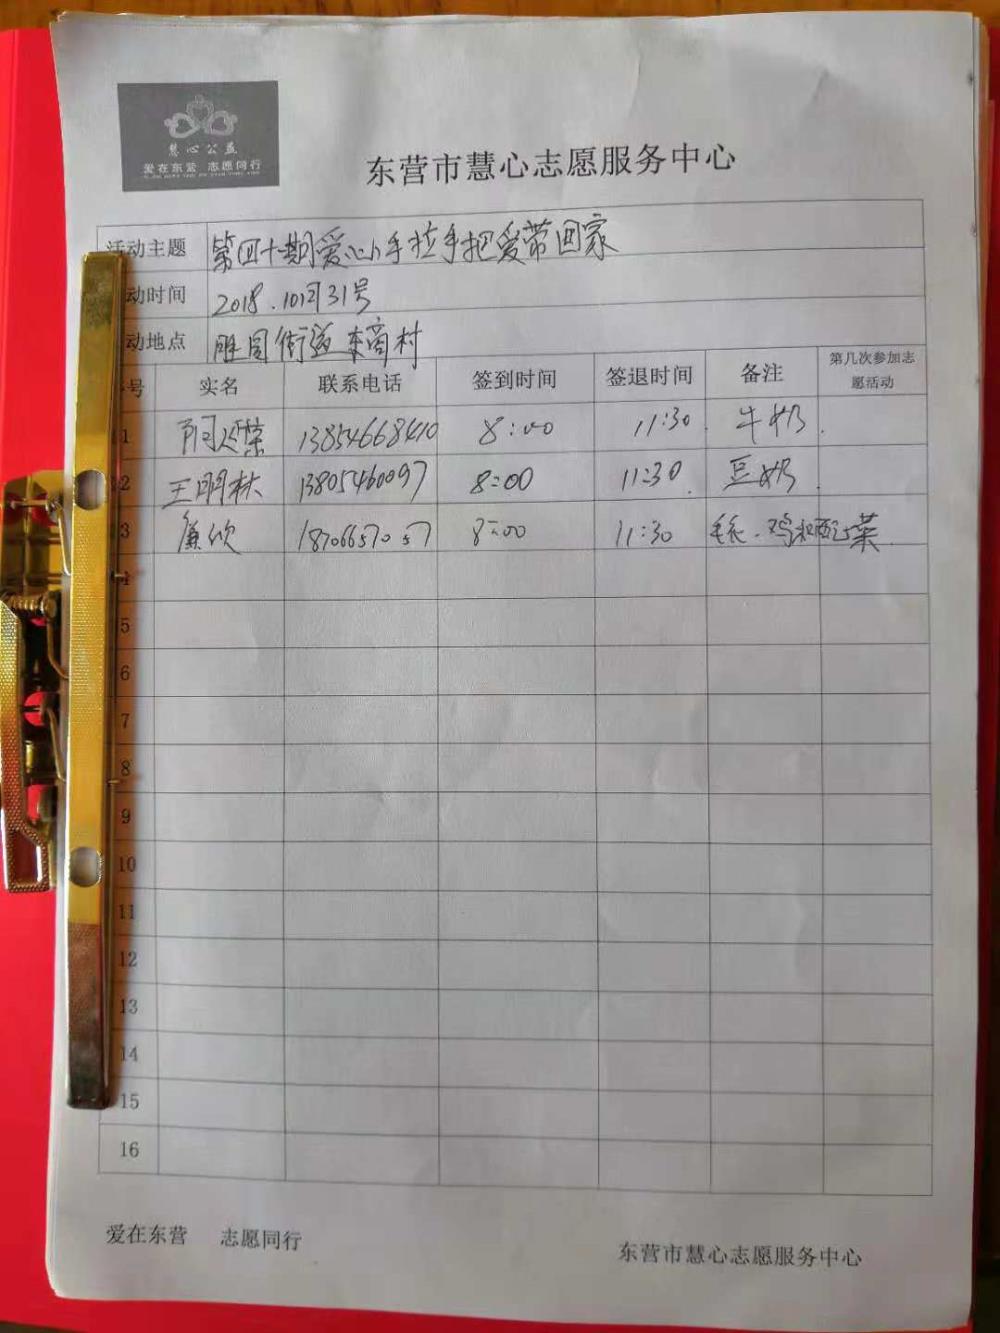 慧心公益
爱在东营 志愿同行
东营市慧心志愿服务中心
活动主题 第四十期爱心小手拉手把爱带回家
动时间 2018.10月31号
动地点 胜园街道东商村
号 实名 联系电话 签到时间 签退时间 备注 第几次参加志愿活动
1 13854668410 8:00 11:30 牛奶
2 王明林 13805460097 8:00 11:30 豆奶
3 廉欣 18706657057 8:00 11:30 毛衣、鸡和配菜
4
5
6
7
8
9
10
11
12
13
14
15
16
爱在东营 志愿同行
东营市慧心志愿服务中心